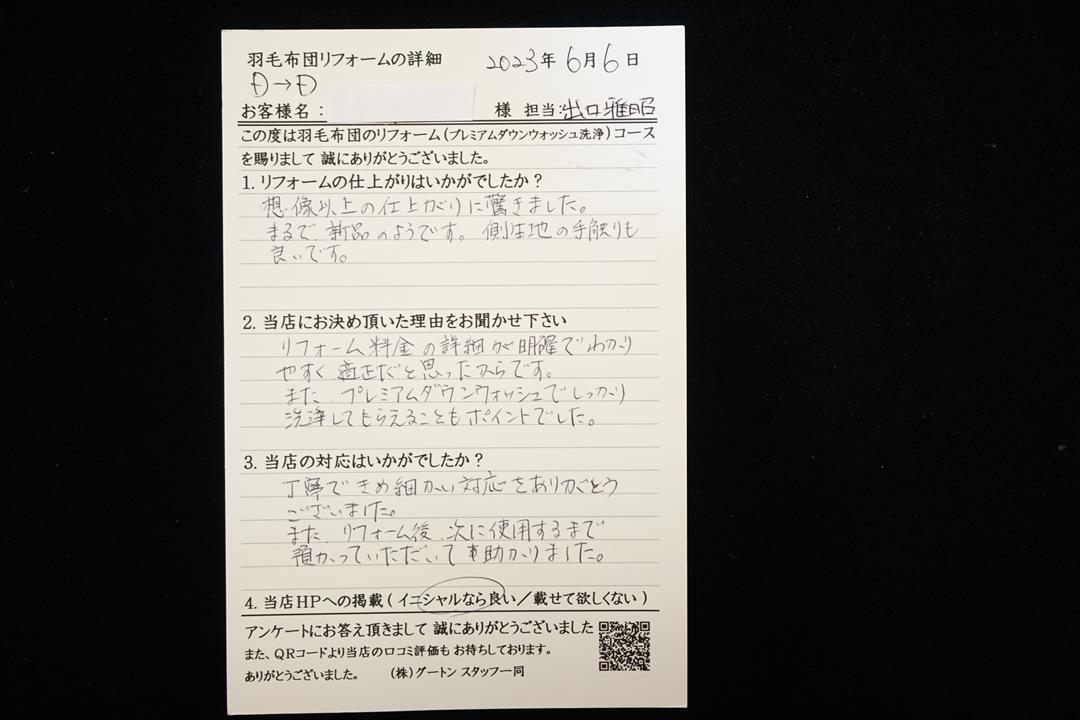 羽毛布団リフォームの詳細 2023年6月6日
Ⓓ→Ⓓ
お客様名： 様 担当:出口雅昭
この度は羽毛布団のリフォーム(プレミアムダウンウォッシュ洗浄)コース
を賜りまして 誠にありがとうございました。
1. リフォームの仕上がりはいかがでしたか？
想像以上の仕上がりに驚きました。
まるで、新品のようです。側生地の手触りも
良いです。
2. 当店にお決め頂いた理由をお聞かせ下さい
リフォーム料金の詳細が明確でわかり
やすく、適正だと思ったからです。
また、プレミアムダウンウォッシュでしっかり
洗浄してもらえることもポイントでした。
3. 当店の対応はいかがでしたか？
丁寧できめ細かい対応をありがとう
ございました。
また、リフォーム後、次に使用するまで
預かっていただいて助かりました。
4. 当店HPへの掲載 ( イニシャルなら良い ／ 載せて欲しくない )
アンケートにお答え頂きまして 誠にありがとうございました
また、QRコードより当店の口コミ評価も お待ちしております。
ありがとうございました。 (株) グートン スタッフ一同